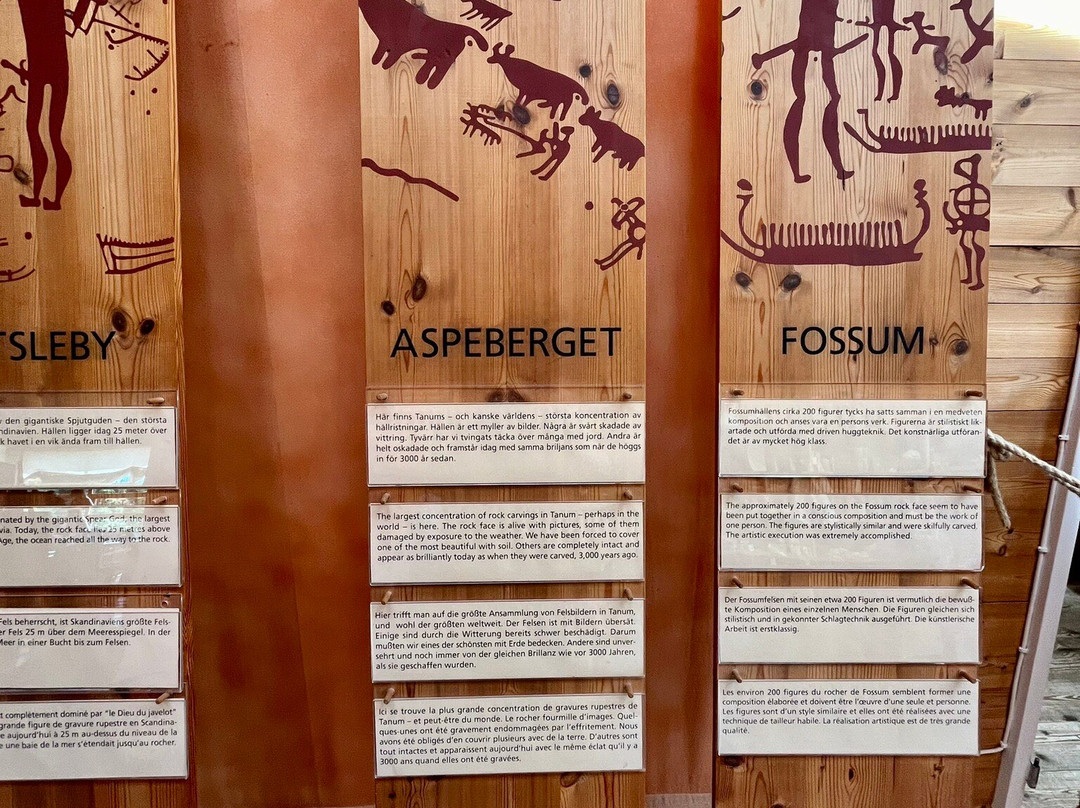 TSLEBY
den gigantiske Spjutguden – den största
ndinavien. Hällen ligger idag 25 meter över
k havet i en vik ända fram till hällen.
nated by the gigantic Spear God, the largest
via. Today, the rock face lies 25 metres above
Age, the ocean reached all the way to the rock.
Fels beherrscht, ist Skandinaviens größte Fels-
er Fels 25 m über dem Meeresspiegel. In der
Meer in einer Bucht bis zum Felsen.
t complètement dominé par "le Dieu du javelot"
grande figure de gravure rupestre en Scandina-
e aujourd'hui à 25 m au-dessus du niveau de la
e une baie de la mer s'étendait jusqu'au rocher.
ASPEBERGET
Här finns Tanums – och kanske världens – största koncentration av
hällristningar. Hällen är ett myller av bilder. Några är svårt skadade av
vittring. Tyvärr har vi tvingats täcka över många med jord. Andra är
helt oskadade och framstår idag med samma briljans som när de höggs
in för 3000 år sedan.
The largest concentration of rock carvings in Tanum – perhaps in the
world – is here. The rock face is alive with pictures, some of them
damaged by exposure to the weather. We have been forced to cover
one of the most beautiful with soil. Others are completely intact and
appear as brilliantly today as when they were carved, 3,000 years ago.
Hier trifft man auf die größte Ansammlung von Felsbildern in Tanum,
und wohl der größten weltweit. Der Felsen ist mit Bildern übersät.
Einige sind durch die Witterung bereits schwer beschädigt. Darum
mußten wir eines der schönsten mit Erde bedecken. Andere sind unver-
sehrt und noch immer von der gleichen Brillanz wie vor 3000 Jahren,
als sie geschaffen wurden.
Ici se trouve la plus grande concentration de gravures rupestres de
Tanum – et peut-être du monde. Le rocher fourmille d'images. Quel-
ques-unes ont été gravement endommagées par l'effritement. Nous
avons été obligés d'en couvrir plusieurs avec de la terre. D'autres sont
tout intactes et apparaissent aujourd'hui avec le même éclat qu'il y a
3000 ans quand elles ont été gravées.
FOSSUM
Fossumhällens cirka 200 figurer tycks ha satts samman i en medveten
komposition och anses vara en persons verk. Figurerna är stilistiskt lik-
artade och utförda med driven huggteknik. Det konstnärliga utföran-
det är av mycket hög klass.
The approximately 200 figures on the Fossum rock face seem to have
been put together in a conscious composition and must be the work of
one person. The figures are stylistically similar and were skilfully carved.
The artistic execution was extremely accomplished.
Der Fossumfelsen mit seinen etwa 200 Figuren ist vermutlich die bewuß-
te Komposition eines einzelnen Menschen. Die Figuren gleichen sich
stilistisch und in gekonnter Schlagtechnik ausgeführt. Die künstlerische
Arbeit ist erstklassig.
Les environ 200 figures du rocher de Fossum semblent former une
composition élaborée et doivent être l'œuvre d'une seule et personne.
Les figures sont d'un style similaire et elles ont été réalisées avec une
technique de tailleur habile. La réalisation artistique est de très grande
qualité.